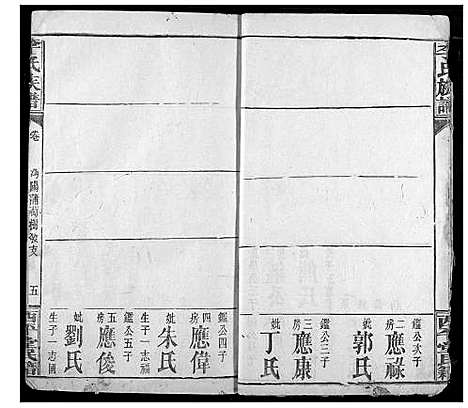 李氏族譜
鑑公次子
二房
應祿
妣
郭氏
鑑公三子
三房
應康
妣
丁氏
鑑公四子
四房
應偉
妣
朱氏
生子一志福
鑑公五子
五房
應俊
妣
劉氏
生子一志國
李氏族譜
卷
沔陽蒲萄樹
支
五